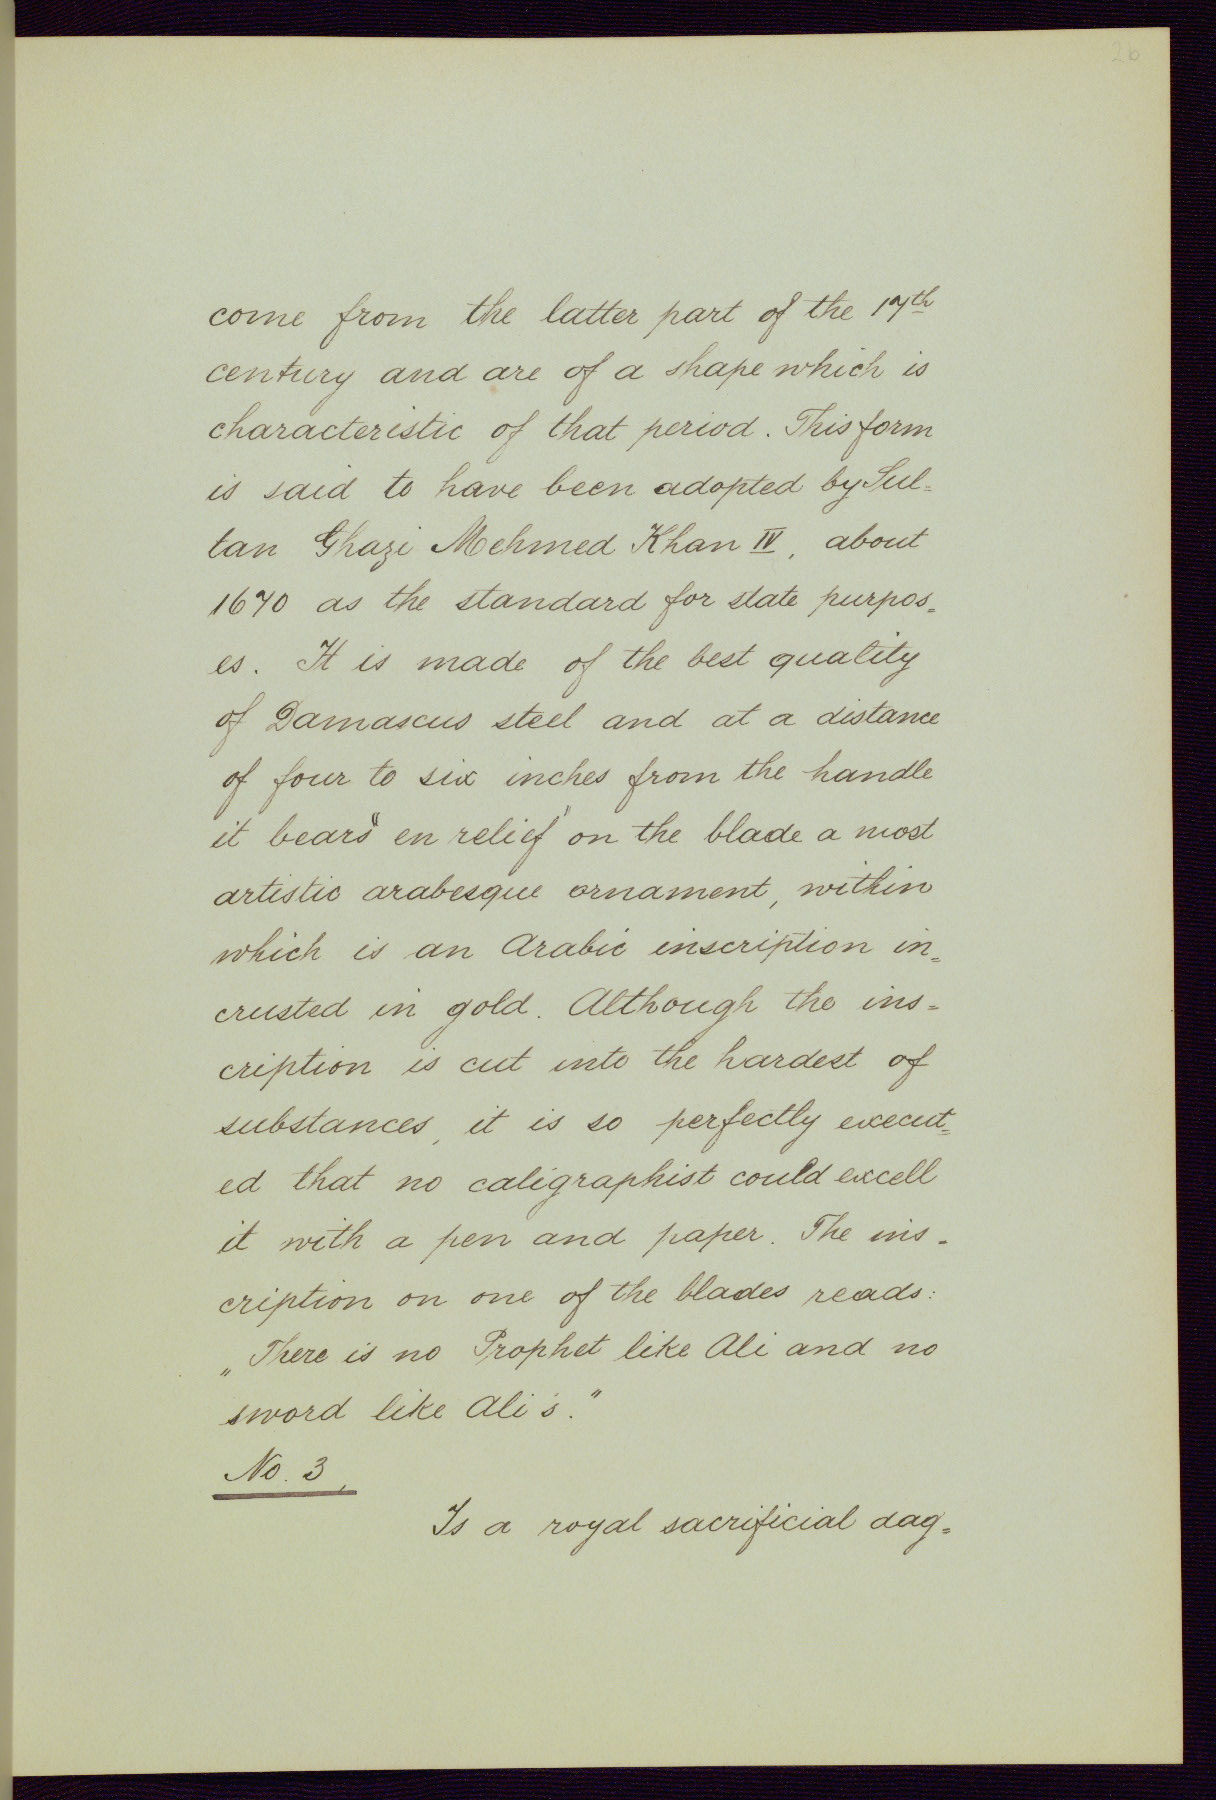 26
come from the latter part of the 17th
century and are of a shape which is
characteristic of that period. This form
is said to have been adopted by Sul=
tan Ghazi Mehmed Khan IV, about
1670 as the standard for state purpos=
es. It is made of the best quality
of Damascus steel and at a distance
of four to six inches from the handle
it bears "en relief" on the blade a most
artistic arabesque ornament, within
which is an Arabic inscription in=
crusted in gold. Although the ins=
cription is cut into the hardest of
substances, it is so perfectly execut=
ed that no caligraphist could excell
it with a pen and paper. The ins=
cription on one of the blades reads:
„There is no Prophet like Ali and no
sword like Ali's."
No. 3,
Is a royal sacrificial dag=